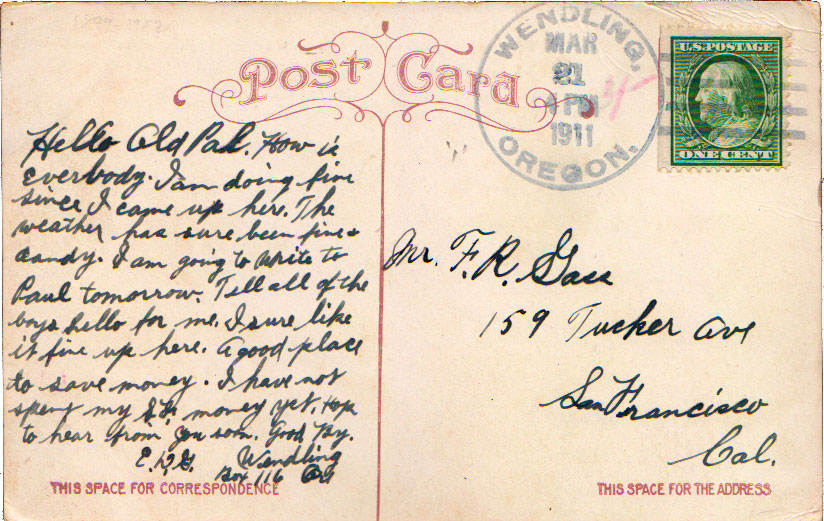 Post Card
WENDLING,
MAR
21
4 PM
1911
OREGON.
U.S. POSTAGE
ONE CENT
Hello Old Pal. How is
everbody. I am doing fine
since I came up here. The
weather has sure been fine &
dandy. I am going to write to
Paul tomorrow. Tell all of the
boys hello for me. I sure like
it fine up here. A good place
to save money. I have not
spent my S.F. money yet. Hop
to hear from you soon. Good By.
Wendling
Box 116 Ore
THIS SPACE FOR CORRESPONDENCE
Mr. F. R. Gass
159 Tucker Ave
San Francisco
Cal.
THIS SPACE FOR THE ADDRESS